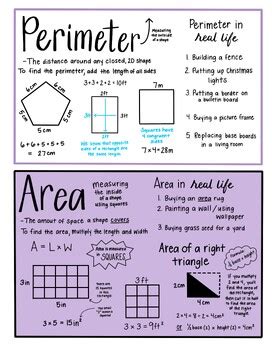 Perimeter
MEASURING
the outside
of a shape
-The distance around any closed, 2D shape
To find the perimeter, add the length of all sides
6cm
6cm
5cm
5cm
5cm
6+6+5+5+5
= 27cm
3+3+2+2=10ft
2ft
3ft
We know that opposite
sides of a rectangle
are the same length.
7m
Squares have
4 congruent
sides.
7×4=28m
Perimeter in
real life
1. Building a fence
2. Putting up Christmas
lights
3. Putting a border on
a bulletin board
4. Buying a picture frame
5. Replacing base boards
in a living room
Area
measuring
the inside
of a shape
using squares
-The amount of space a shape covers
To find the area, multiply the length and width
A = L × W
Area is
measured
in SQUARES
3in
5in
3 × 5 = 15in²
3 ft
3ft
3 × 3 = 9ft²
Area in real life
1. Buying an area rug
2. Painting a wall / using
wallpaper
3. Buying grass seed for a yard
Area of a right
triangle
2cm
4cm
If you multiply
2 and 4, you'll
find the area of
the rectangle,
then cut it in half
to find the area
of the right
triangle.
2 × 4 = 8 ÷ 2 = 4cm²
or ½ base (x) height = 4cm²